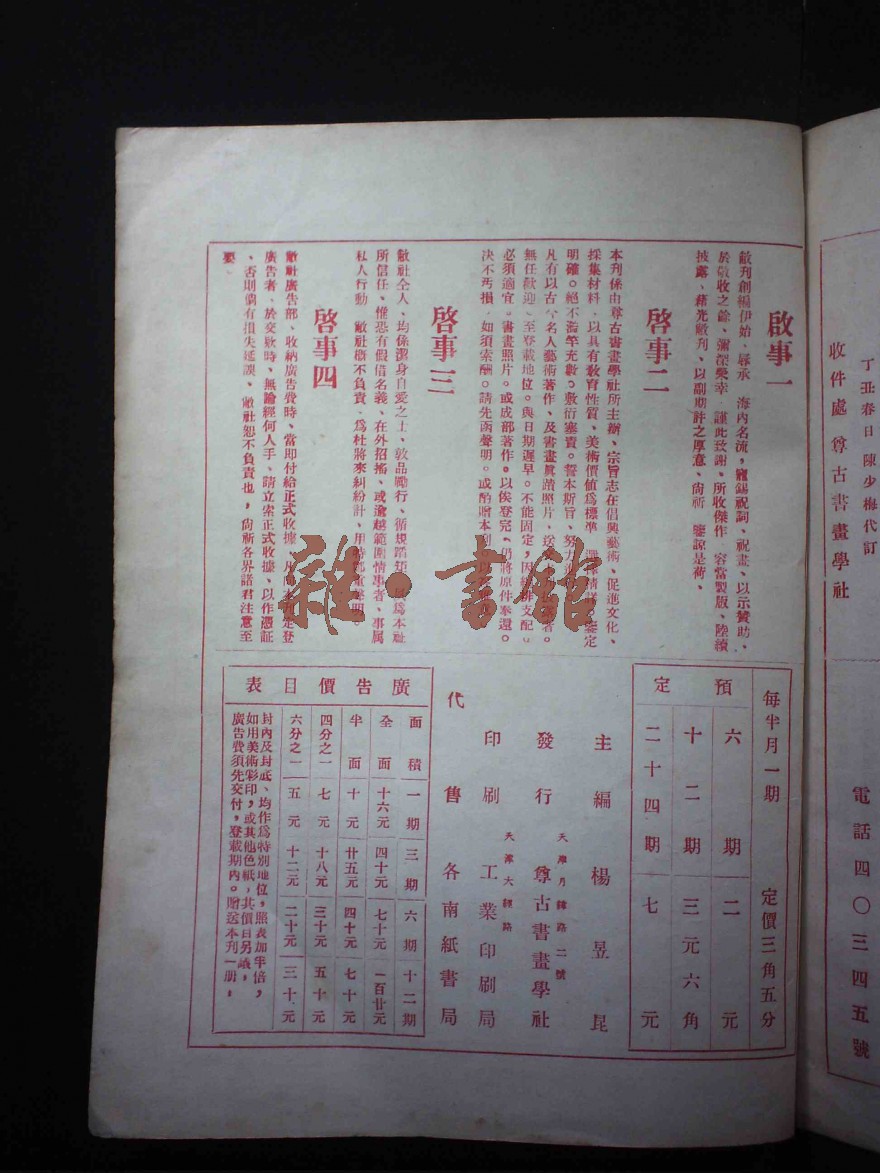 丁丑春日 陳少梅代訂
收件處 尊古書畫學社
電話四〇三四五號
啟事一
敝刊創編伊始、辱承 海內名流、寵錫祝詞、祝畫、以示贊助、
於敬收之餘、彌深榮幸 謹此致謝、所收傑作 容當製版、陸續
披露、藉光敝刊、以副期許之厚意、尙祈 鑒諒是荷、
啓事二
本刊係由尊古書畫學社所主辦、宗旨志在倡興藝術、促進文化、
採集材料、以具有敎育性質、美術價値爲標準 定
明確。絕不濫竽充數。敷衍塞責。誓本斯旨、努力
凡有以古今名人藝術著作、及書畫眞蹟照片、送 者。
無任歡迎、至登載地位。與日期遲早。不能固定，因 支配。
必須適宜。書畫照片。或成部著作。以俟登完。仍將原件奉還。
決不汚損。如須索酬。請先函聲明。或酌贈本刊
啓事三
敝社仝人、均係潔身自愛之士、敦品勵行、循規蹈矩、 爲本社
所信任、惟恐有假借名義、在外招搖、或逾越範圍情事者、事属
私人行動 敝社概不負責、爲杜將來糾紛計、用特鄭重聲明
啓事四
敝社廣告部、收納廣告費時、當即付給正式收據、凡 登
廣告者、於交欵時、無論經何人手、請立索正式收據、以作憑証
、否則倘有損失延誤、敝社恕不負責也，尙祈各界諸君注意至
要、
每半月一期 定價三角五分
預定
六期 二元
十二期 三元六角
二十四期 七元
主編 楊昱昆
發行 天津月緯路二號 尊古書畫學社
印刷 天津大經路 工業印刷局
代售 各南紙書局
廣告價目表
面積 一期 三期 六期 十二期
全面 十六元 四十元 七十元 一百廿元
半面 十元 廿五元 四十元 七十元
四分之一 七元 十八元 三十元 五十元
六分之一 五元 十二元 二十元 三十元
封內及封底、均作爲特別地位，照表加半倍，
如用美術彩印，或其他色紙，其價目另議，
廣告費須先交付，登載期內。贈送本刊一册，
雜·書館